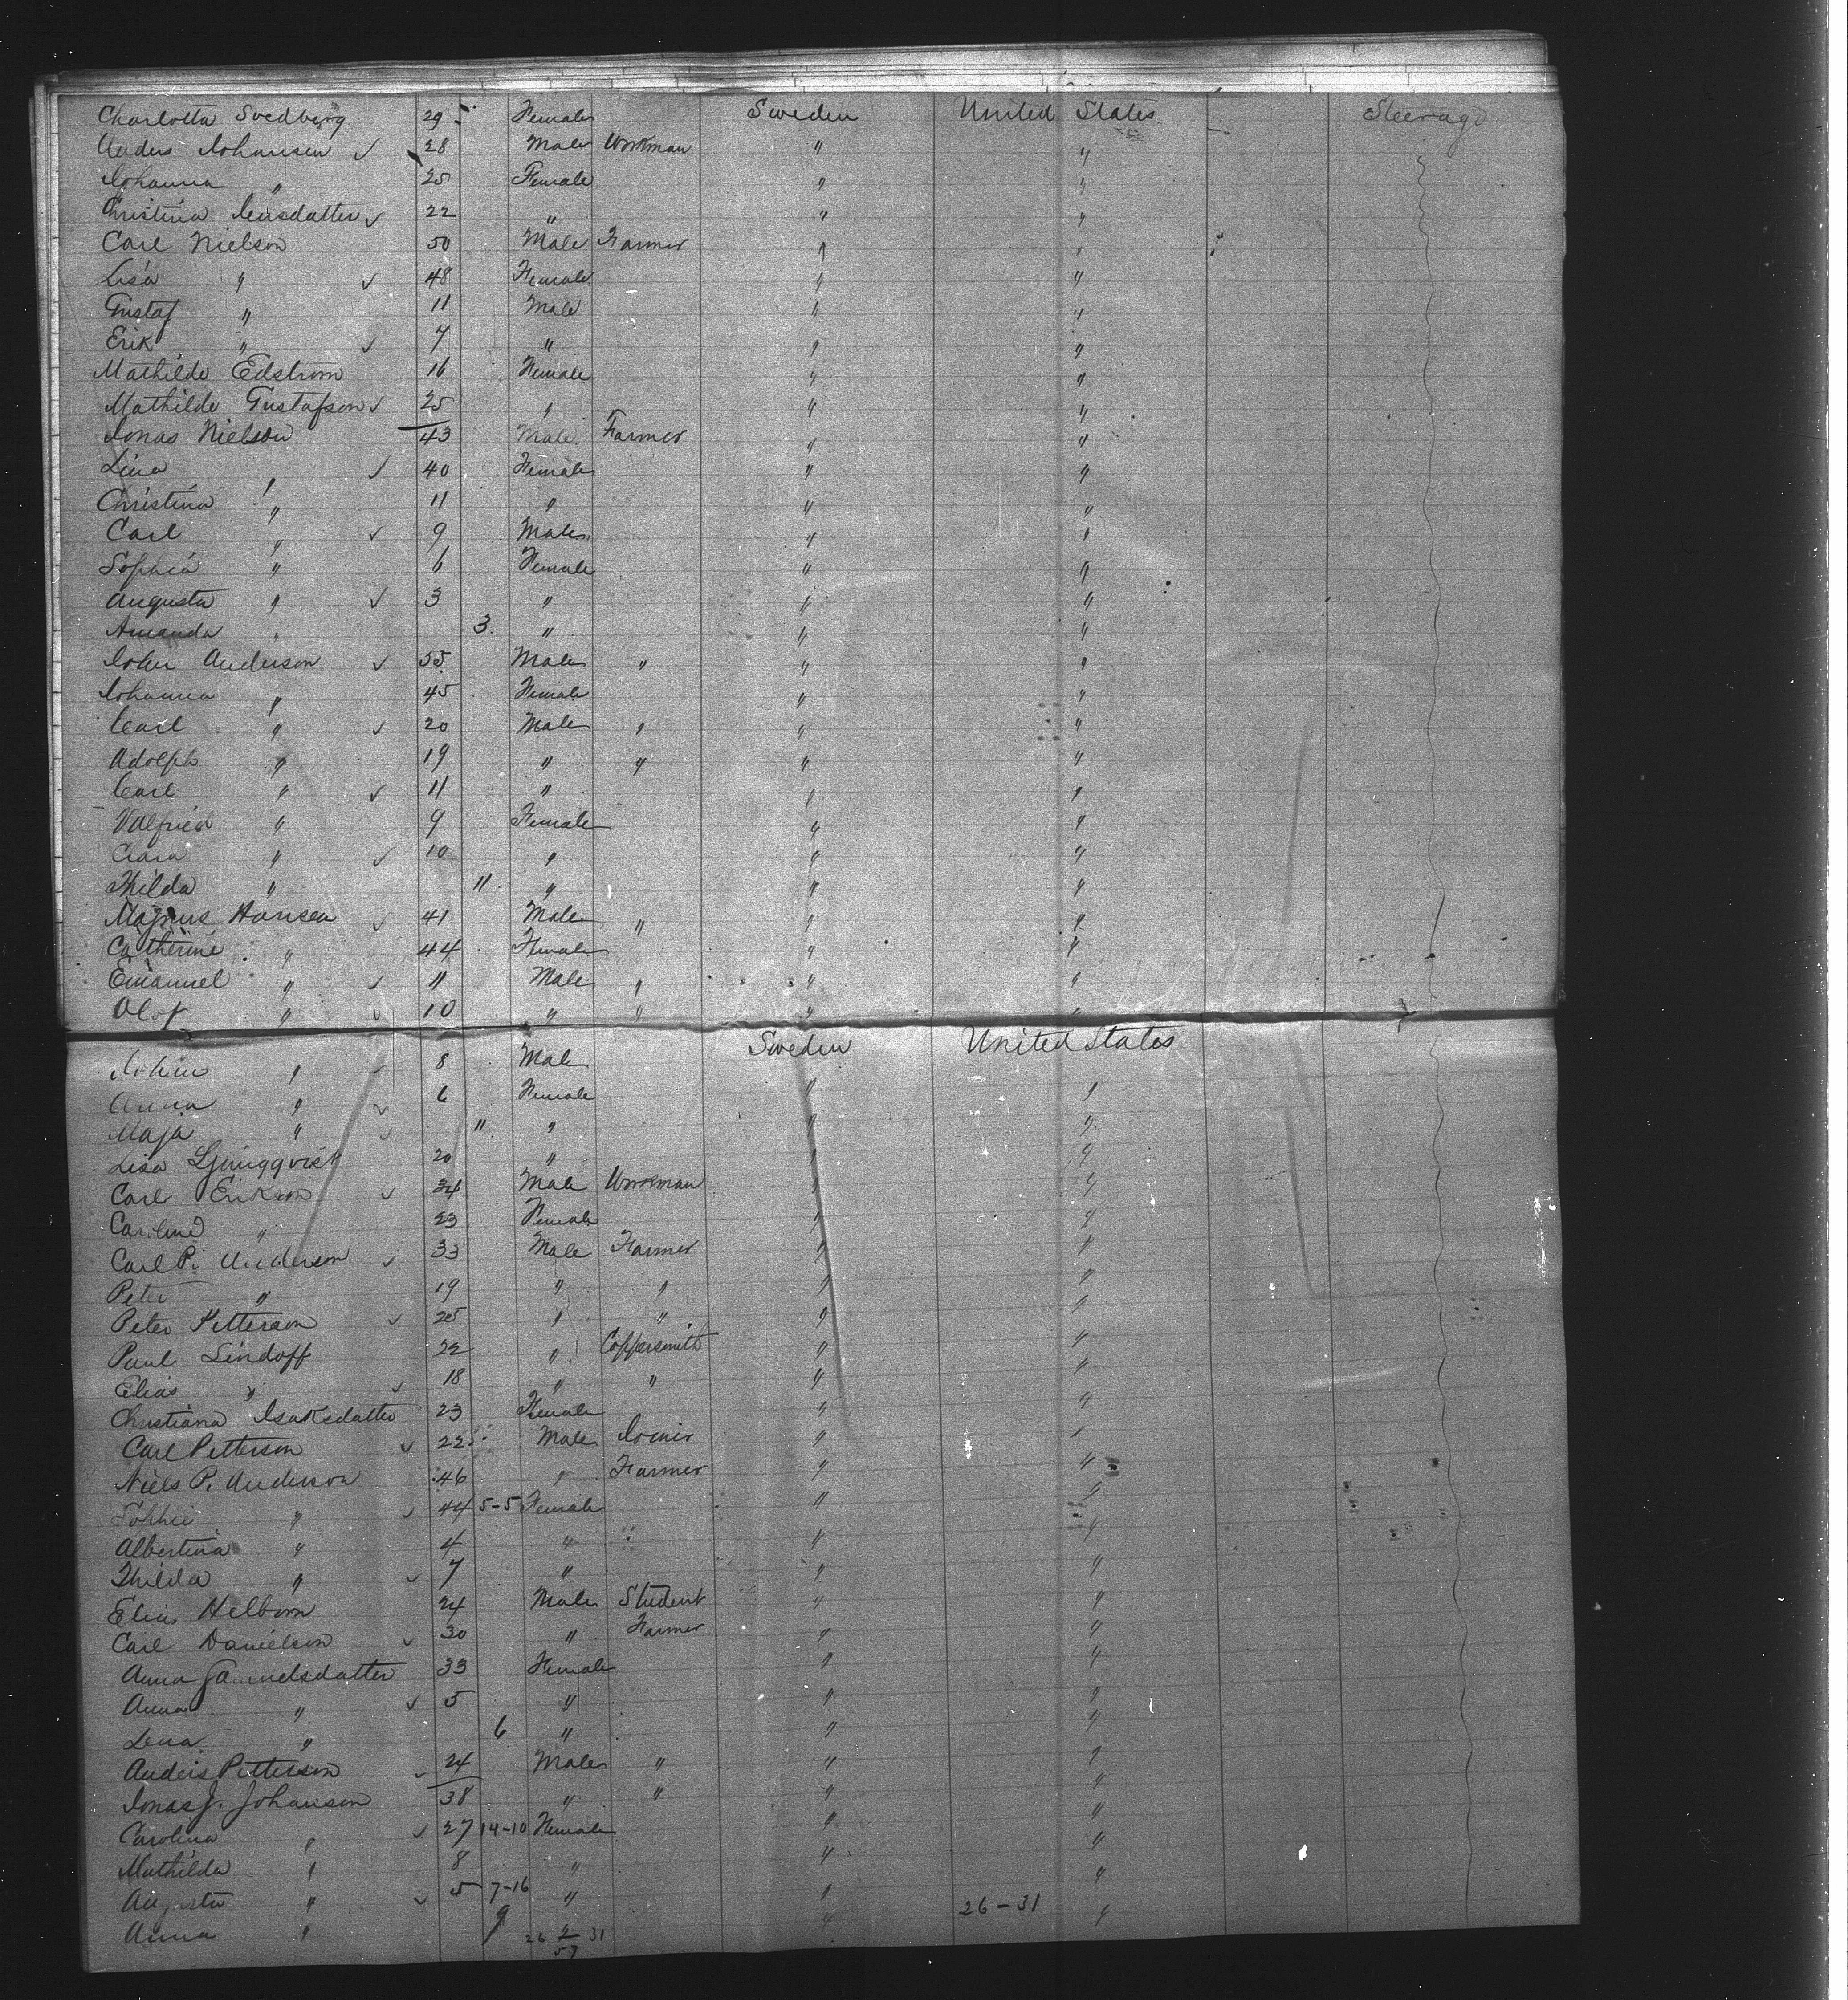 Charlotta Svedberg 29 Female Sweden United States Steerage
Anders Johansen ✓ 28 Male Workman " "
Johanna " 25 Female " "
Christina Larsdatter ✓ 22 " " "
Carl Nielson 50 Male Farmer " "
Lisa " ✓ 48 Female " "
Gustaf " 11 Male " "
Erik " ✓ 7 " " "
Mathilde Edstrom 16 Female " "
Mathilde Gustafson ✓ 25 " " "
Jonas Nielson 43 Male Farmer " "
Lina " ✓ 40 Female " "
Christina " 11 " " "
Carl " ✓ 9 Male " "
Sophia " 6 Female " "
Augusta " ✓ 3 " " "
Amanda " 3 " " "
John Anderson ✓ 55 Male " " "
Johanna " 45 Female " "
Carl " ✓ 20 Male " " "
Adolph " 19 " " " "
Carl " ✓ 11 " " "
Valfried " 9 Female " "
Clara " ✓ 10 " " "
Thilda " 11 " " "
Magnus Hansen ✓ 41 Male " " "
Catherine " 44 Female " "
Emanuel " ✓ 11 Male " " "
Olof " ✓ 10 " " " "
Johan " ✓ 8 Male Sweden United States
Anna " ✓ 6 Female " "
Maja " ✓ 11 " " "
Lisa Ljungqvist 20 " " "
Carl Erikson ✓ 24 Male Workman " "
Caroline " 23 Female " "
Carl P. Anderson ✓ 33 Male Farmer " "
Peter " 19 " " " "
Peter Petterson ✓ 25 " " " "
Paul Lindoff 22 " Coppersmith " "
Elias " ✓ 18 " " " "
Christiana Isaksdatter 23 Female " "
Carl Petterson ✓ 22 Male Joiner " "
Niels P. Anderson 46 " Farmer " "
Sophie " ✓ 44 5-5 Female " "
Albertina " 4 " " "
Thilda " ✓ 7 " " "
Elias Helbom 24 Male Student " "
Carl Danielson ✓ 30 " Farmer " "
Anna Samuelsdatter 33 Female " "
Anna " ✓ 5 " " "
Lena " 6 " " "
Anders Petterson ✓ 24 Male " " "
Jonas J. Johanson 38 " " " "
Carolina " ✓ 27 14-10 Female " "
Mathilda " 8 " " "
Augusta " ✓ 5 7-16 " " 26-31 "
Anna " 9 " " "
26 31
57